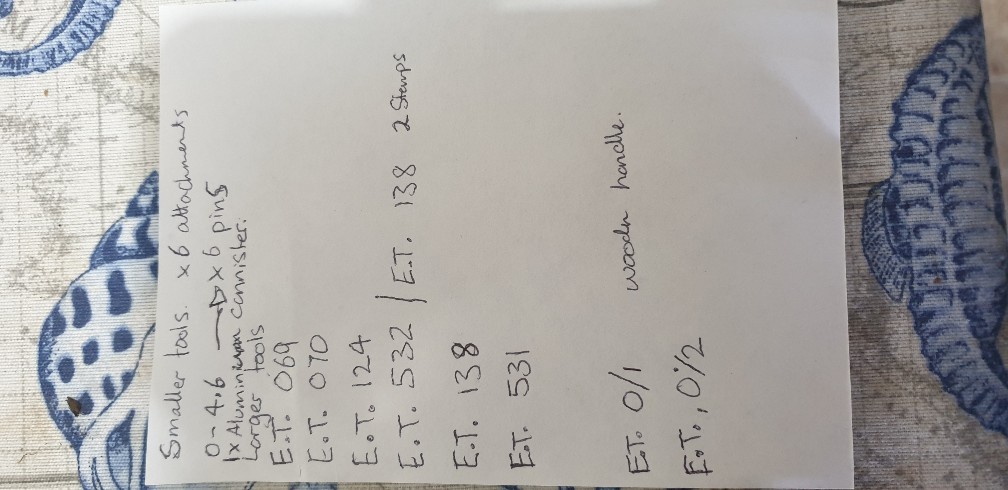 Smaller tools. x 6 attachments
0-4,6 → x 6 pins
1x Aluminium cannister.
Larger tools
E.T. 069
E.T. 070
E.T. 124
E.T. 532 / E.T. 138 2 Stamps
E.T. 138
E.T. 531
E.T. 0/1 wooden handle.
E.T. 0/2